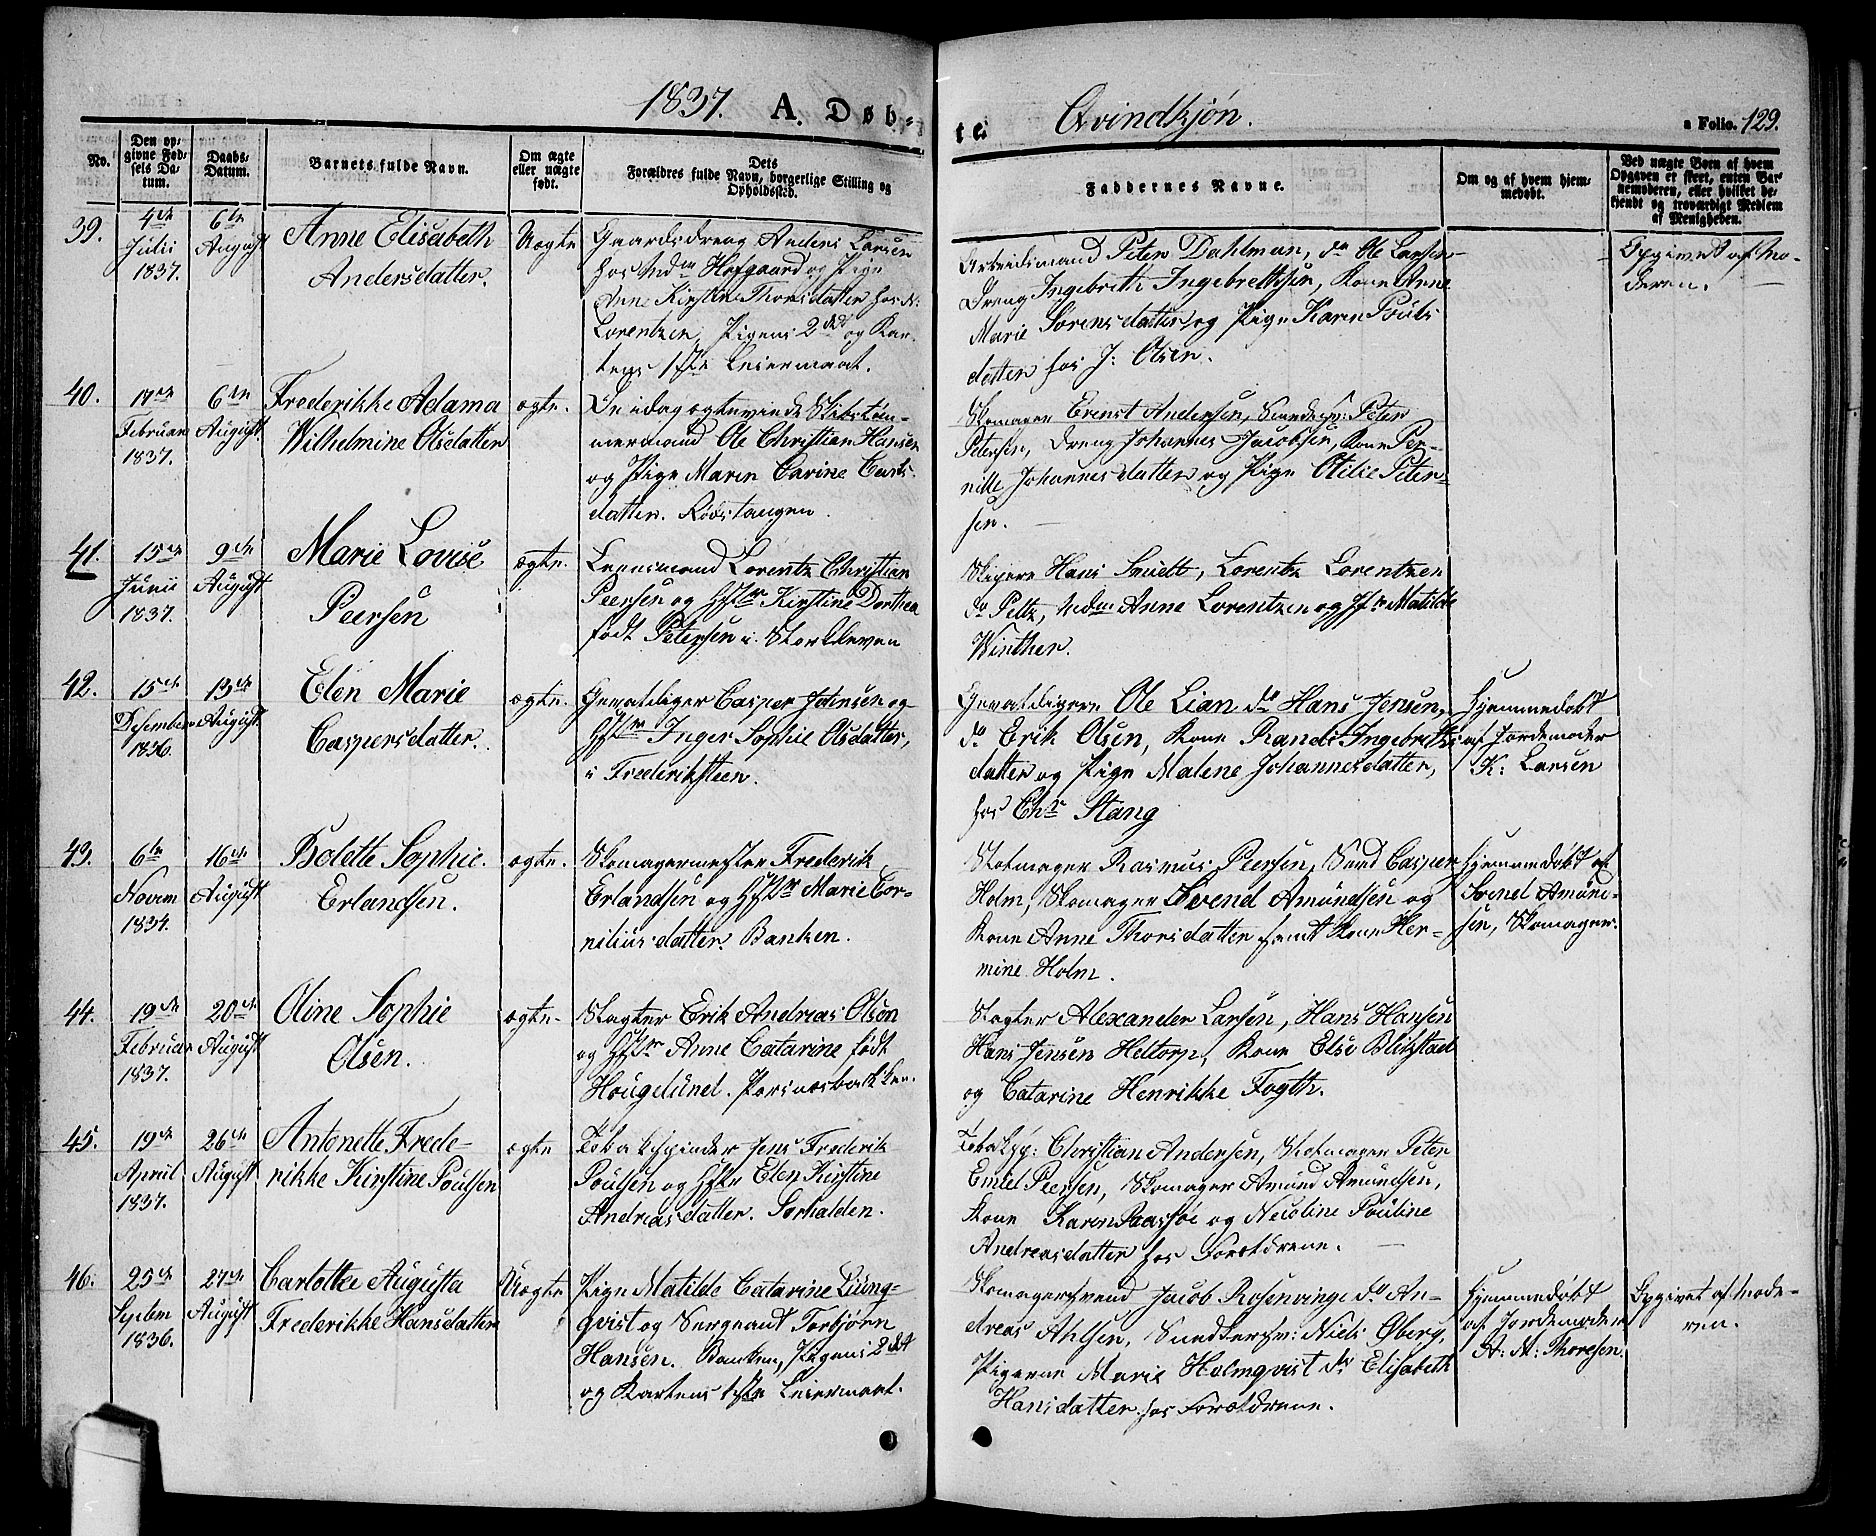 1837. A. Døb-
te. Qvindkjøn. a Folio. 129.
No.
Den op-
givne Fød-
sels Da-
tum.
Daabs-
Datum.
Barnets fulde Navn.
Om ægte
eller uægte
født.
Dets
Forældres fulde Navn, borgerlige Stilling og
Opholdssted.
Faddernes Navne.
Om og af hvem hjem-
medøbt.
Ved uægte Børn af hvem
Opgaven er skeet, enten Bar-
nemoderen, eller hvilket be-
kjendt og troværdigt Medlem
af Menigheden.
39.
4de
Julii
1837.
6te
August
Anne Elisabeth
Andersdatter.
Uægte
Gaardsdreng Anders Larsen
hos Md. Hofgaard og Pige
Anne Kirstine Thorsdatter hos N:
Lorentzen, Pigens 2det og Kar-
lens 1ste Leiermaal.
Arbeidsmand Peter Dahlman, do Ole Larsen
Dreng Ingebreth Ingebrethsen, Kone Anne
Marie Sørensdatter og Pige Karen Pouls
datter hos J: Olsen.
Opgivet af Mo-
deren.
40.
17de
Februar
1837.
6te
August
Frederikke Adama
Wilhelmine Olsdatter
ægte.
De idag ægteviede Skibstøm-
mermand Ole Christian Hansen
og Pige Maren Carine Carls-
datter. Rødstangen
Skomager Ernst Andersen, Snedkersv: Peter
Petersen, Dreng Johannes Jacobsen, Kone Per-
nille Johannesdatter og Pige Otilie Peter-
sen.
41.
15de
Junii
1837.
9de
August
Marie Lovise
Peersen
ægte.
Leensmand Lorentz Christian
Peersen og Hstr Kirstine Dorthea
født Petersen i Storkleven
Skipper Hans Smidt, Lorentz Lorentzen
do Peltz, Md. Anne Lorentzen og Jfr Matilde
Winther.
42.
15de
Desember
1836.
13de
August
Elen Marie
Caspersdatter.
ægte.
Gevaldiger Casper Johnsen og
Hstr Inger Sophie Olsdatter,
i Frederiksteen.
Gevaldigere Ole Lian do Hans Jensen,
do Erik Olsen, Kone Randi Ingebreths
datter og Pige Malene Johannesdatter,
hos Chr Stang
Hjemmedøbt
af Jordemoder
K: Larsen
43.
6te
Novem
1834.
16de
August
Bolette Sophie
Erlandsen.
ægte.
Skomagermester Frederik
Erlandsen og Hstr Marie Cor-
niliusdatter. Banken.
Stolmager Rasmus Peersen, Smed Casper
Holm, Skomager Svend Amundsen og
Kone Anne Thorsdatter samt Kone Her-
mine Holm.
Hjemmedøbt af
Svend Amund-
sen, Skomager.
44.
19de
Februar
1837.
20de
August
Oline Sophie
Olsen.
ægte.
Slagter Erik Andreas Olson
og Hstr Anne Catarine født
Hougelund.
Slagter Alexander Larsen, Hans Hansen
Hans Jensen Heltorp, Kone Else Blitzstad
og Catarine Henrikke Fogth.
45.
19de
April
1837.
26de
August
Antonette Frede-
rikke Kirstine Poulsen
ægte
Tobakspinder Jens Frederik
Poulsen og Hstr Elen Kirstine
Andreasdatter. Sørhalden.
Tobaksp: Christian Andersen, Stolmager Peter
Emiel Peersen, Skomager Amund Amundsen,
Kone Karen Aasføe og Nicoline Pouline
Andreasdatter hos Forældrene.
46.
25de
Septem
1836.
27de
August
Carlotte Augusta
Frederikke Hansdatter
Uægte
Pige Matilde Catarine Liung-
qvist og Sergeant Torbjørn
Hansen. Banken, Pigens 2det
og Karlens 1ste Leiermaal.
Skomagersvend Jacob Rosenvinge do An-
dreas Ahlsen, Snedkersv: Niels Øberg,
Pigerne Marie Holmqvist do Elisabeth
Hansdatter hos Forældrene.
Hjemmedøbt
af Jordemoder
A: M: Thoresen.
Opgivet af Mode-
ren.